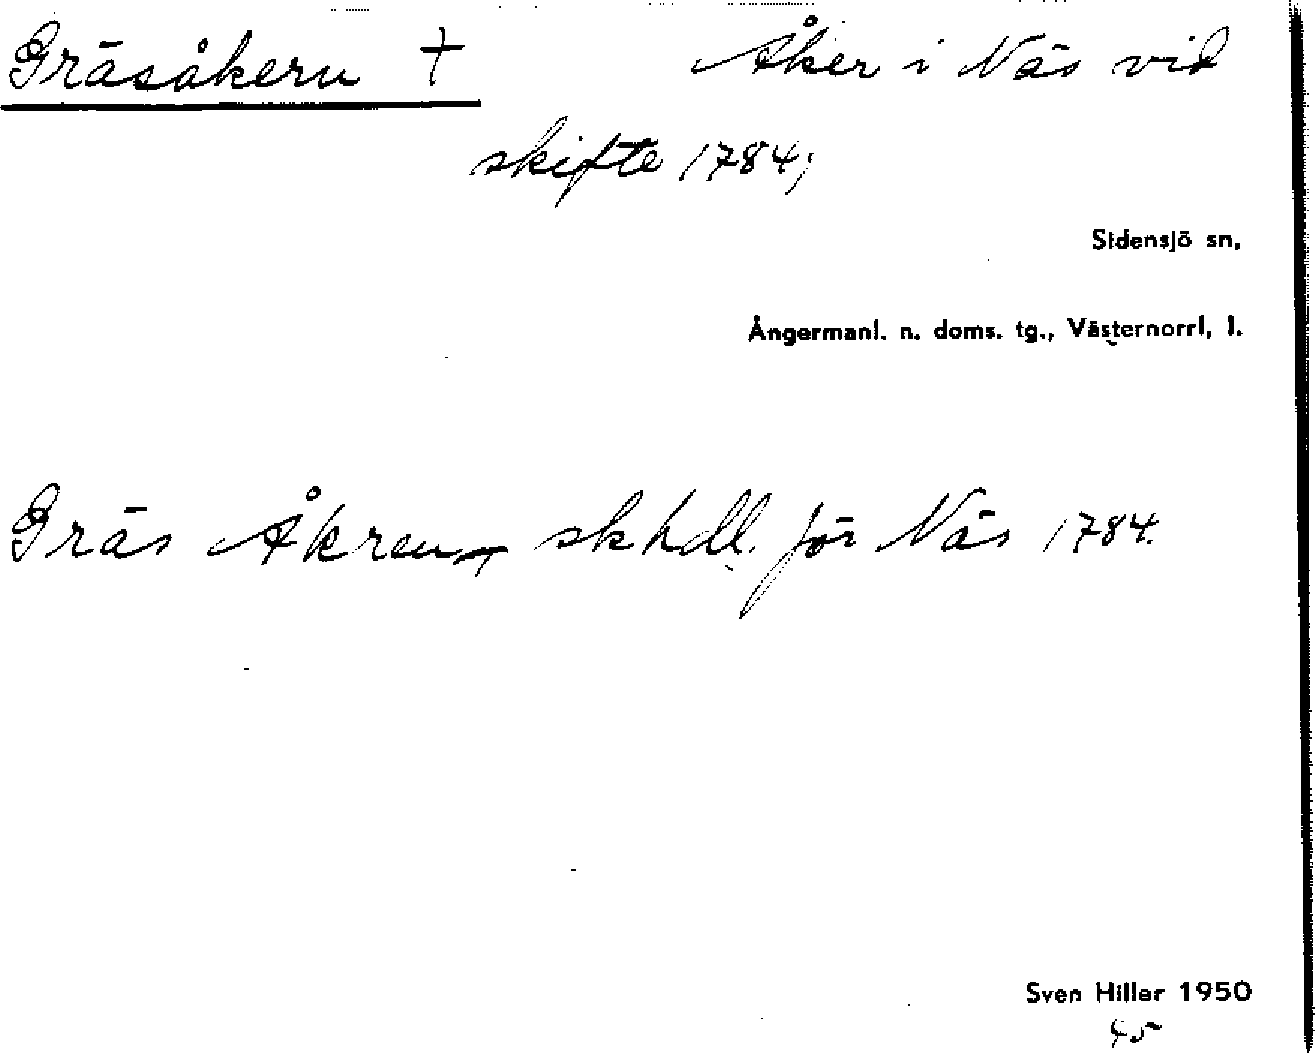 Gräsåkern † Åker i Näs vid
skifte 1784;
Sidensjö sn,
Ångermanl. n. doms. tg., Västernorrl, l.
Gräs Åkren, skhdl. för Näs 1784.
Sven Hiller 1950
45